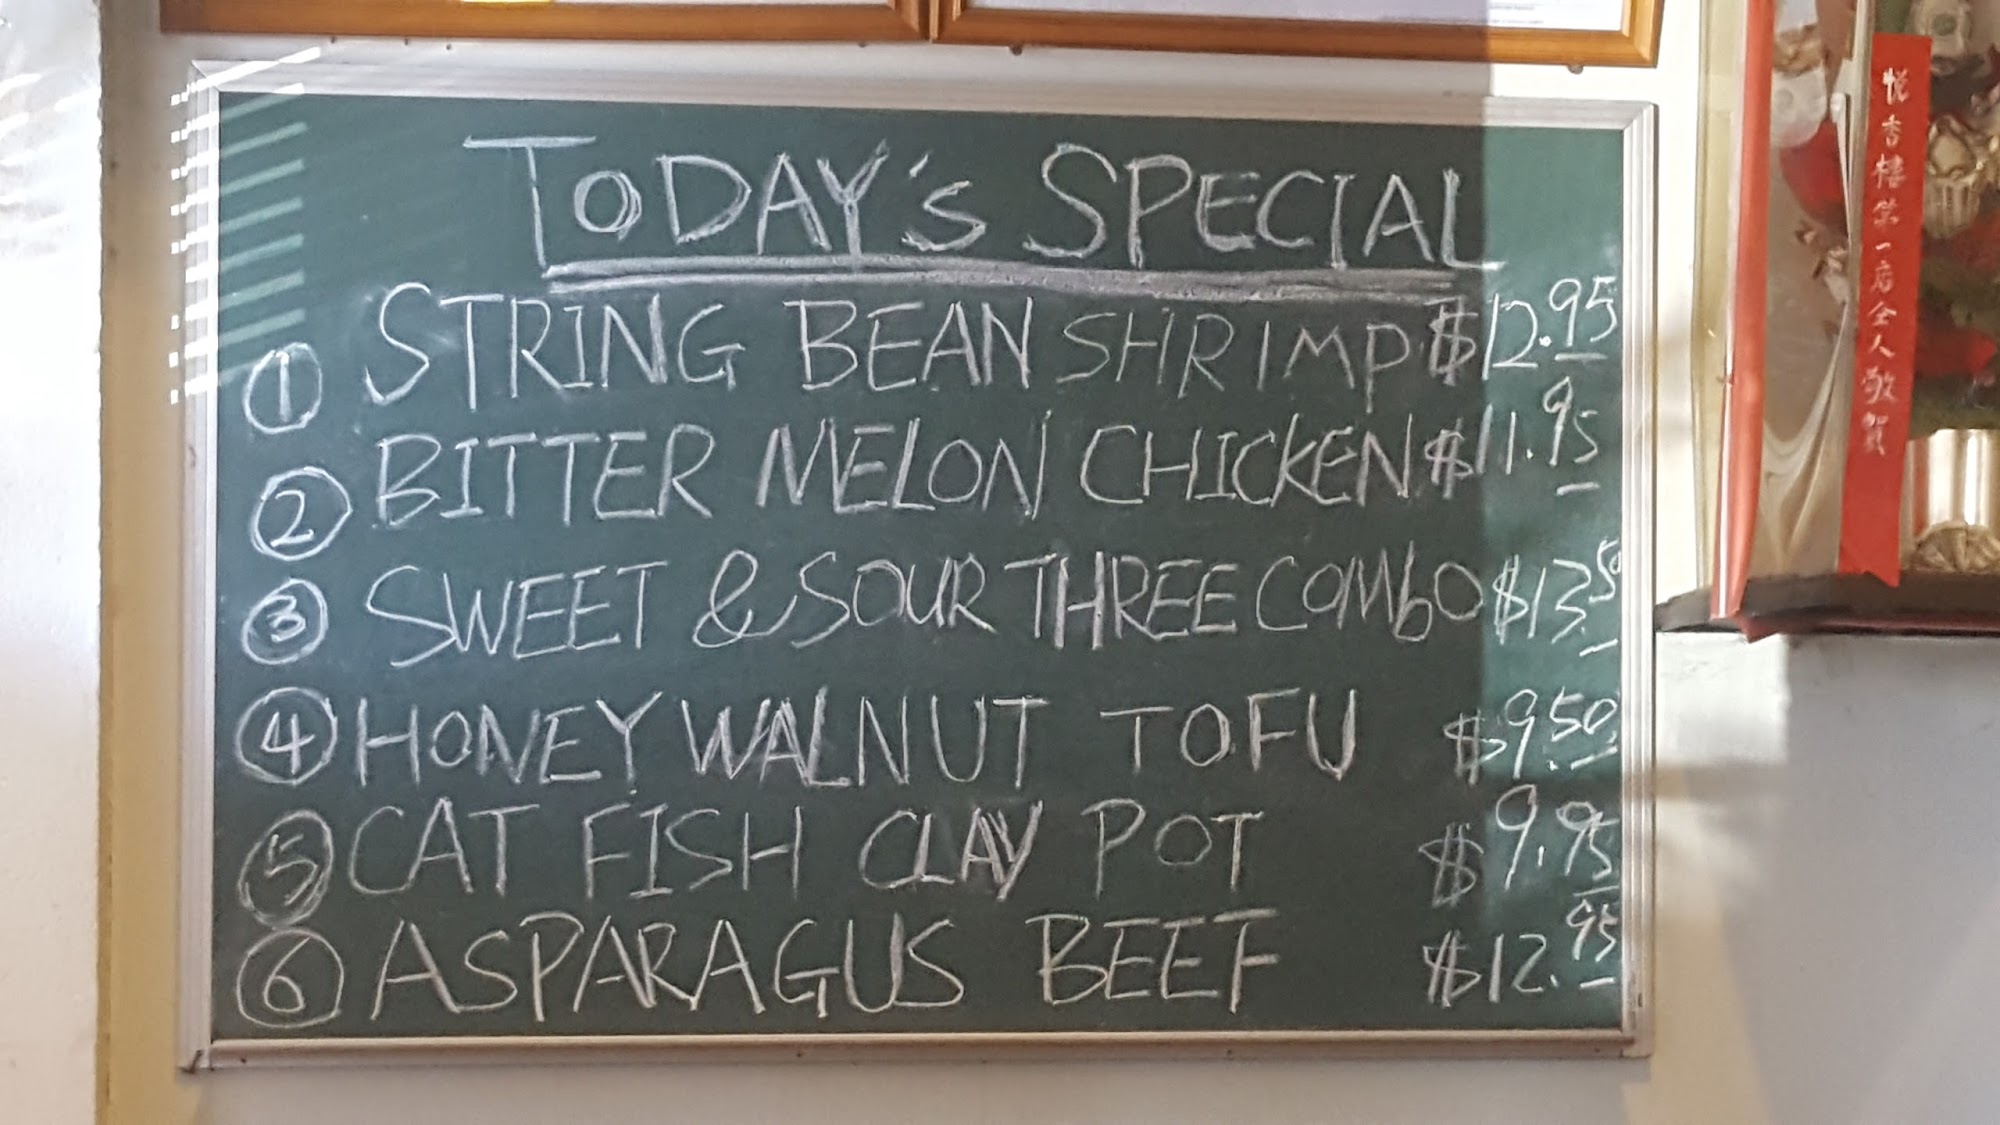 TODAY's SPECIAL
① STRING BEAN SHRIMP $12.95
② BITTER MELON CHICKEN $11.95
③ SWEET & SOUR THREE COMBO $13.50
④ HONEY WALNUT TOFU $9.50
⑤ CAT FISH CLAY POT $9.95
⑥ ASPARAGUS BEEF $12.95
悅香樓第一店全人敬賀